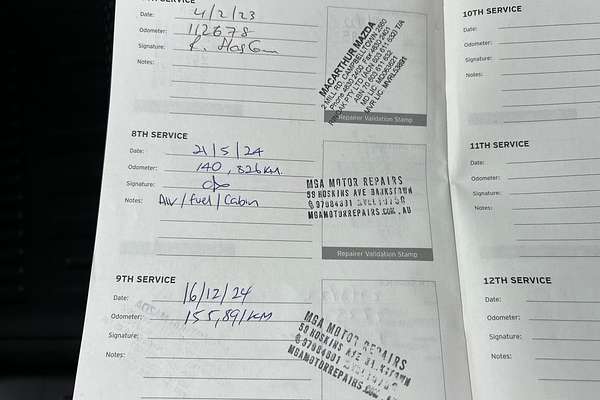 SERVICE
Date: 4/2/23
Odometer: 112678
Signature:
Notes:
MACARTHUR MAZDA
2 MILL RD, CAMPBELLTOWN 2560
Phone 4630 2400 Fax 4630 2401
Repairer Validation Stamp
8TH SERVICE
Date: 21/5/24
Odometer: 140,826KM.
Signature:
Notes: Air/fuel/Cabin
MGA MOTOR REPAIRS
59 HOSKINS AVE BANKSTOWN
97084831
MGAMOTORREPAIRS.COM.AU
Repairer Validation Stamp
9TH SERVICE
Date: 16/12/24
Odometer: 155,891KM
Signature:
Notes:
MGA MOTOR REPAIRS
59 HOSKINS AVE
97084831
MGAMOTORREPAIRS.COM
10TH SERVICE
Date:
Odometer:
Signature:
Notes:
11TH SERVICE
Date:
Odometer:
Signature:
Notes:
12TH SERVICE
Date:
Odometer:
Signature:
Notes: